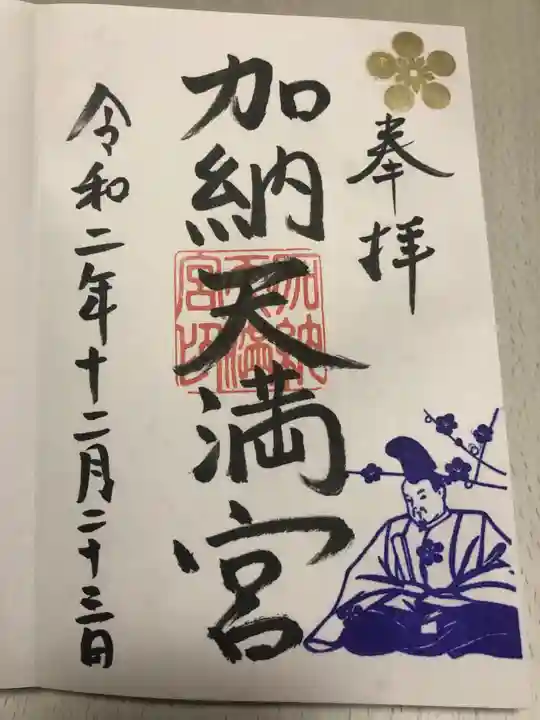 奉拝
加納天満宮
加納天満宮印
令和二年十二月二十三日